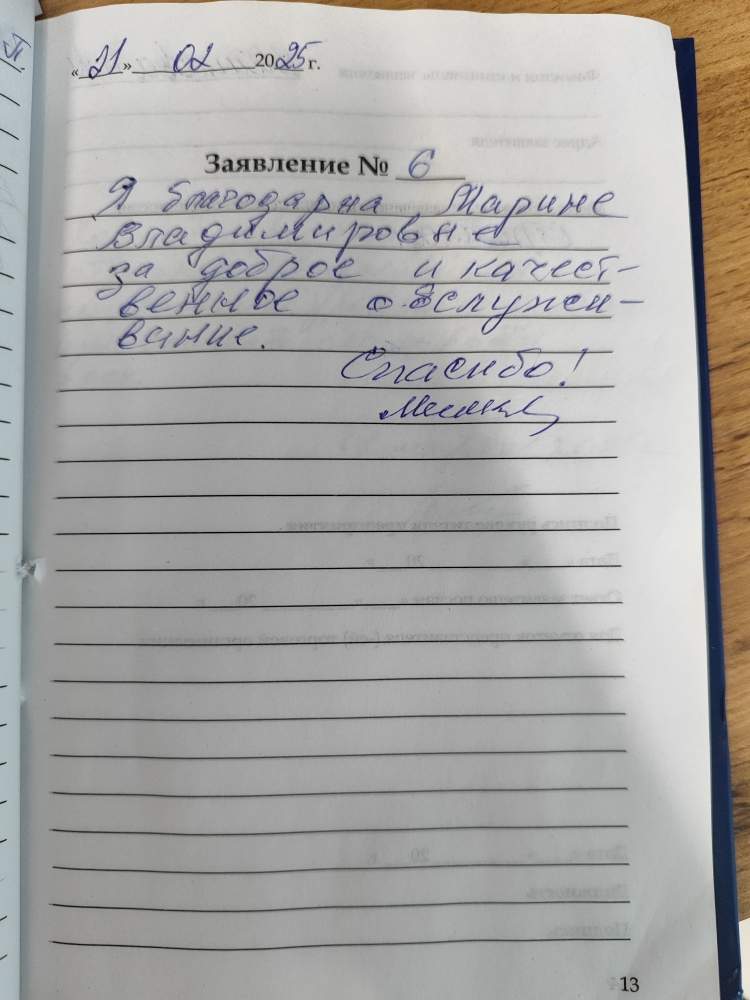 « 21 » 02 2025 г.
Заявление № 6
Я благодарна Марине
Владимировне
за доброе и качест-
венное обслужи-
вание.
Спасибо!
13